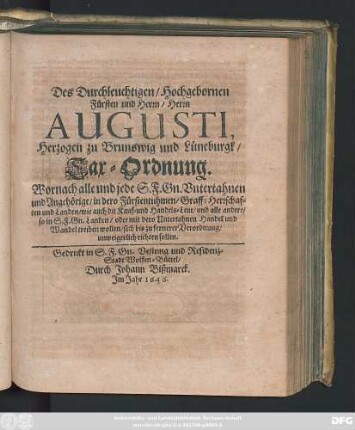 Des Durchleuchtigen/ Hochgebornen
Fürsten und Herrn/ Herrn
AUGUSTI,
Herzogen zu Brunswig und Lüneburgk/
Tax-Ordnung.
Wornach alle und jede S.F.Gn. Untertahnen
und Angehörige/ in dero Fürstentuhmen/ Graff- Herrschaf-
ten und Landen/ wie auch die Kauf- und Handels-Leut/ und alle andere/
so in S.F.Gn. Landen/ oder mit dero Untertahnen Handel und
Wandel treiben wollen/ sich bis zu fernerer Verordnung/
unweigerlich richten sollen.
Gedrukt in S. F. Gn. Vestung und Residentz-
Stadt Wolffen-Büttel/
Durch Johann Bißmarck.
Im Jahr 1646.
Universitäts- und Landesbibliothek Sachsen-Anhalt
DFG